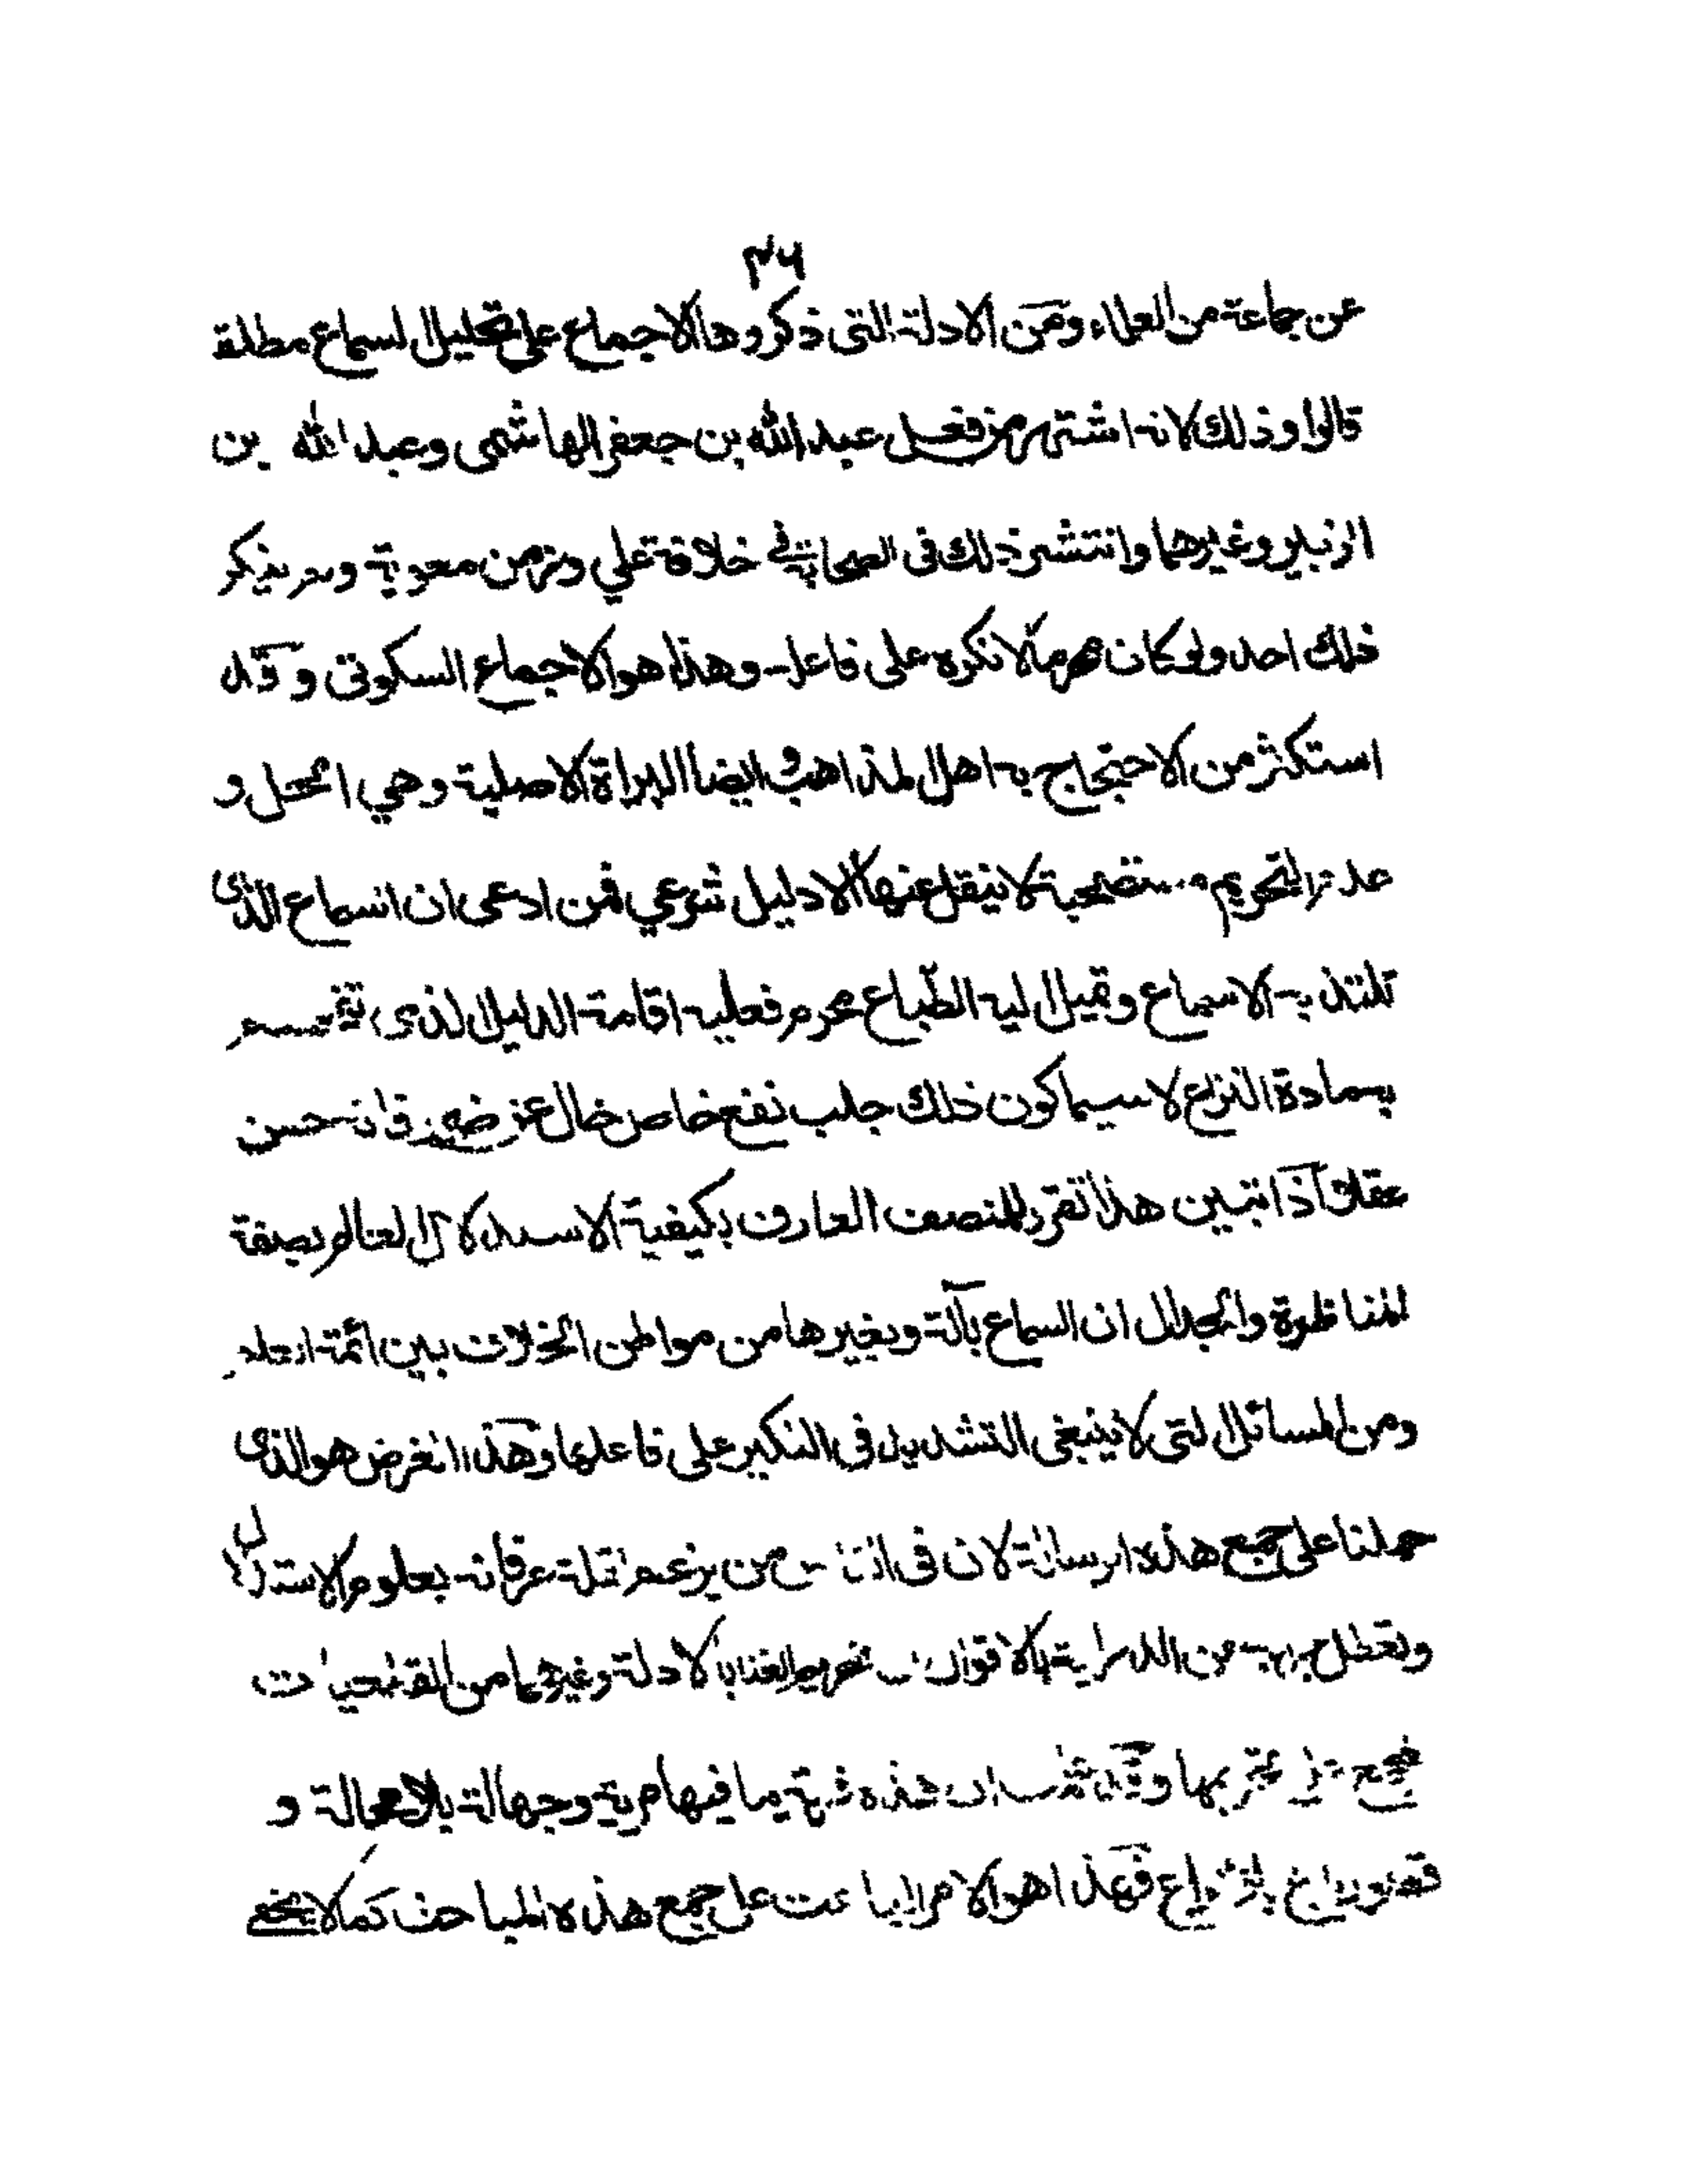 ٣٦
عن جماعة من العلماء ومن الادلة التى ذكروها الاجماع على تحليل السماع مطلقا
قالوا وذلك لانه اشتهر من فعل عبد الله بن جعفر الهاشمى وعبد الله بن
الزبير وغيرهما وانتشر ذلك فى الصحابة فى خلافة علي وزمن معوية ولم ينكر
ذلك احد ولو كان محرما لانكره على فاعله وهذا هو الاجماع السكوتى وقد
استكثر من الاحتجاج به اهل المذاهب وايضا البراة الاصلية وهي الحل و
عدم التحريم مستصحبة لا ينقل عنها الا دليل شرعي فمن ادعى ان السماع الذى
تلتذ به الاسماع وتميل اليه الطباع محرم فعليه اقامة الدليل الذى
به مادة النزاع لا سيما كون ذلك جلب نفع خاص خال عن ضرر فانه حسن
عقلا واذا تبين هذا تقرر للمنصف العارف بكيفية الاستدلال العالم بصفة
المناظرة والجدال ان السماع بآلة وبغيرها من مواطن الخلاف بين ائمة العلم
ومن المسائل التى لا ينبغى التشديد فى النكير على فاعلها وهذا الغرض هو الذى
حملنا على جمع هذه الرسالة لان فى الناس من يزعم لقلة عرفانه بعلوم الاستدلال
وتعطل من الدراية بالاقوال تحريم الغنا بالادلة وغيرهما من القطعيات
المجمع على تحريمها وقد علمت ان هذه فرية ما فيها مرية وجهالة بلا محالة و
باع فهذا هو الامر الباعث على جمع هذه المباحث كما لا يخفى